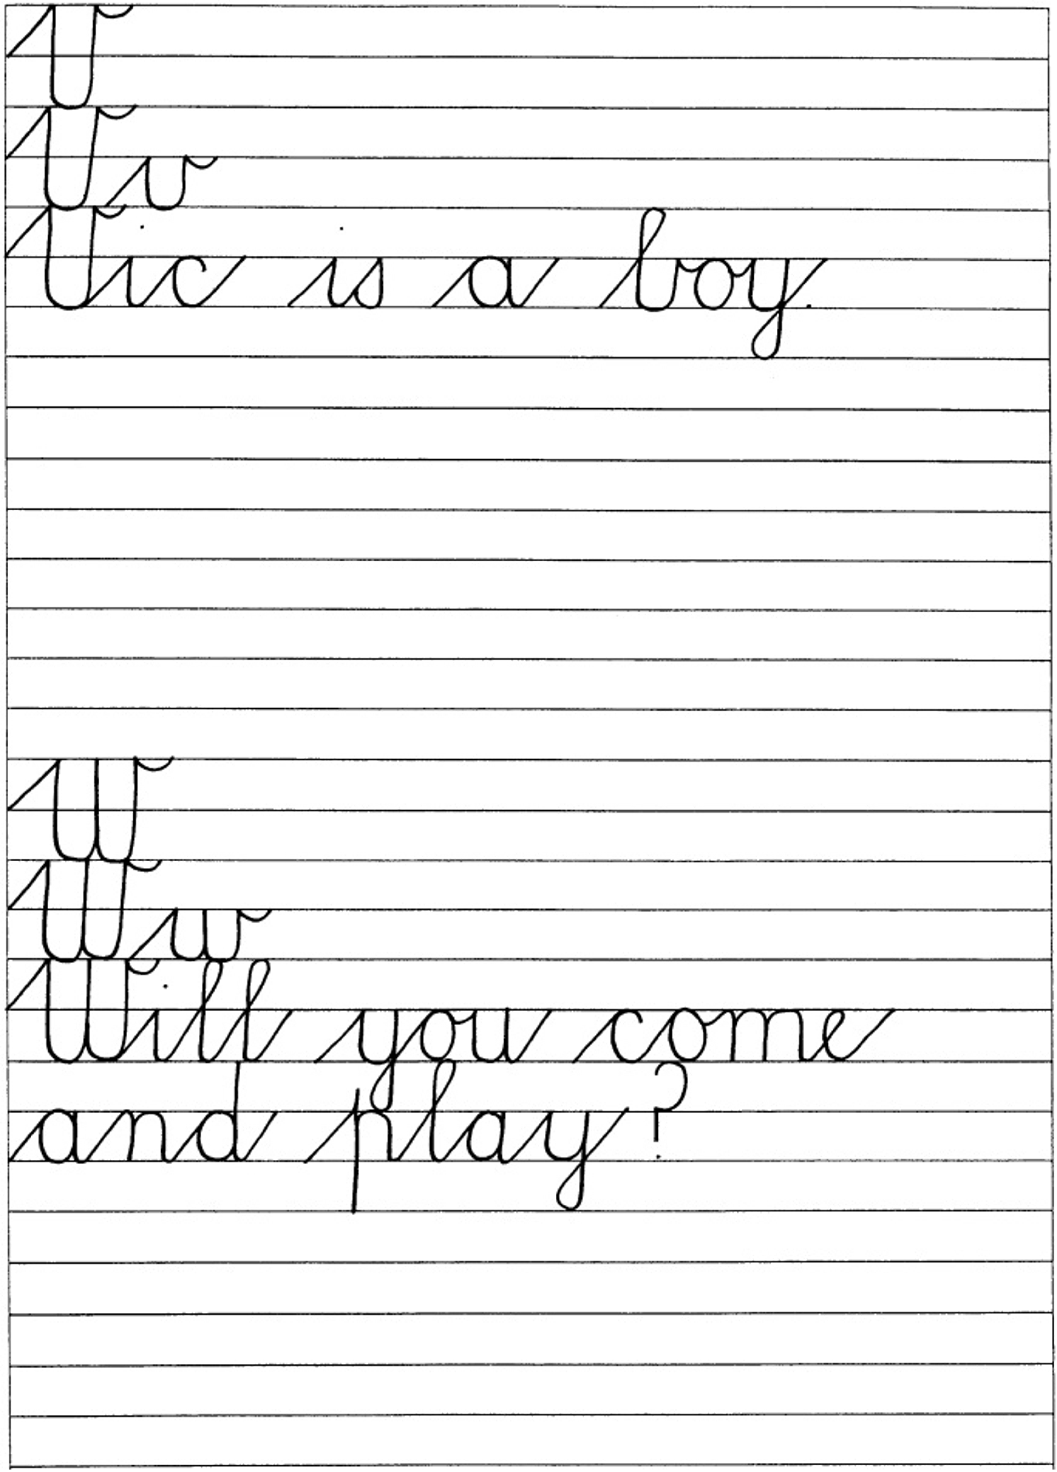 V
V v
Vic is a boy.
W
W w
Will you come
and play?